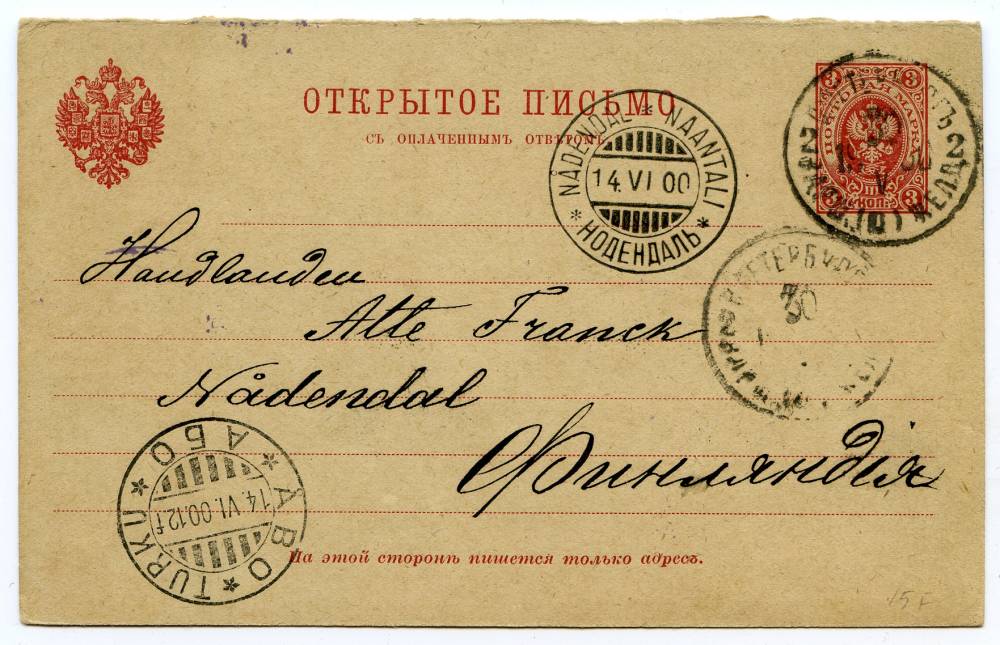 ОТКРЫТОЕ ПИСЬМО
СЪ ОПЛАЧЕННЫМЪ ОТВѢТОМЪ.
3 3
ПОЧТОВАЯ МАРКА
ТРИ КОП.
3 3
NÅDENDAL * NAANTALI
14. VI 00
* НОДЕНДАЛЬ *
Handlanden
Atte Franck
Nådendal
Финляндія
30
ÅBO * TURKU * АБО *
14. VI. 00. 12 f
На этой сторонѣ пишется только адресъ.
15 F